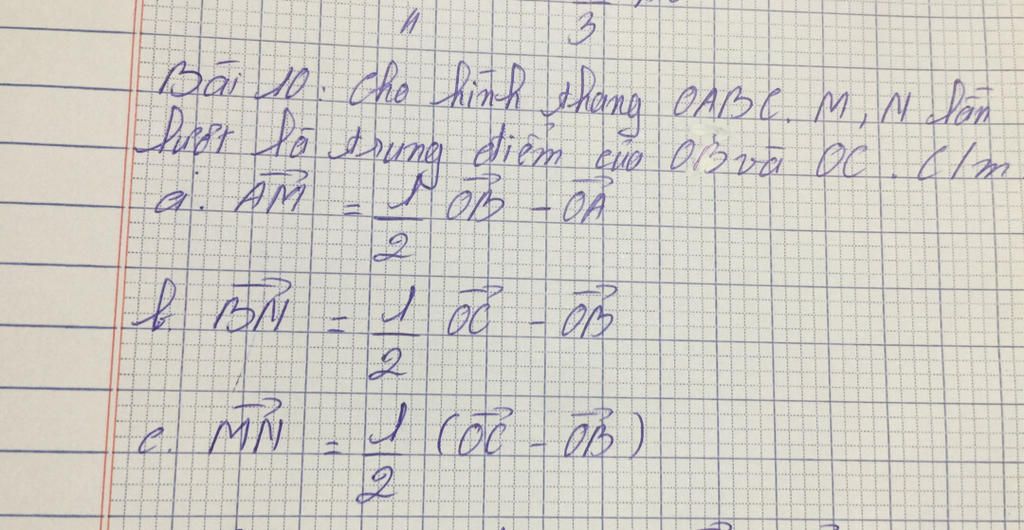 A 3
Bài 10: Cho hình thang OABC. M, N lần
lượt là trung điểm của OB và OC. C/m
a. \overrightarrow{AM} = \frac{1}{2} \overrightarrow{OB} - \overrightarrow{OA}
b. \overrightarrow{BN} = \frac{1}{2} \overrightarrow{OC} - \overrightarrow{OB}
c. \overrightarrow{MN} = \frac{1}{2} (\overrightarrow{OC} - \overrightarrow{OB})